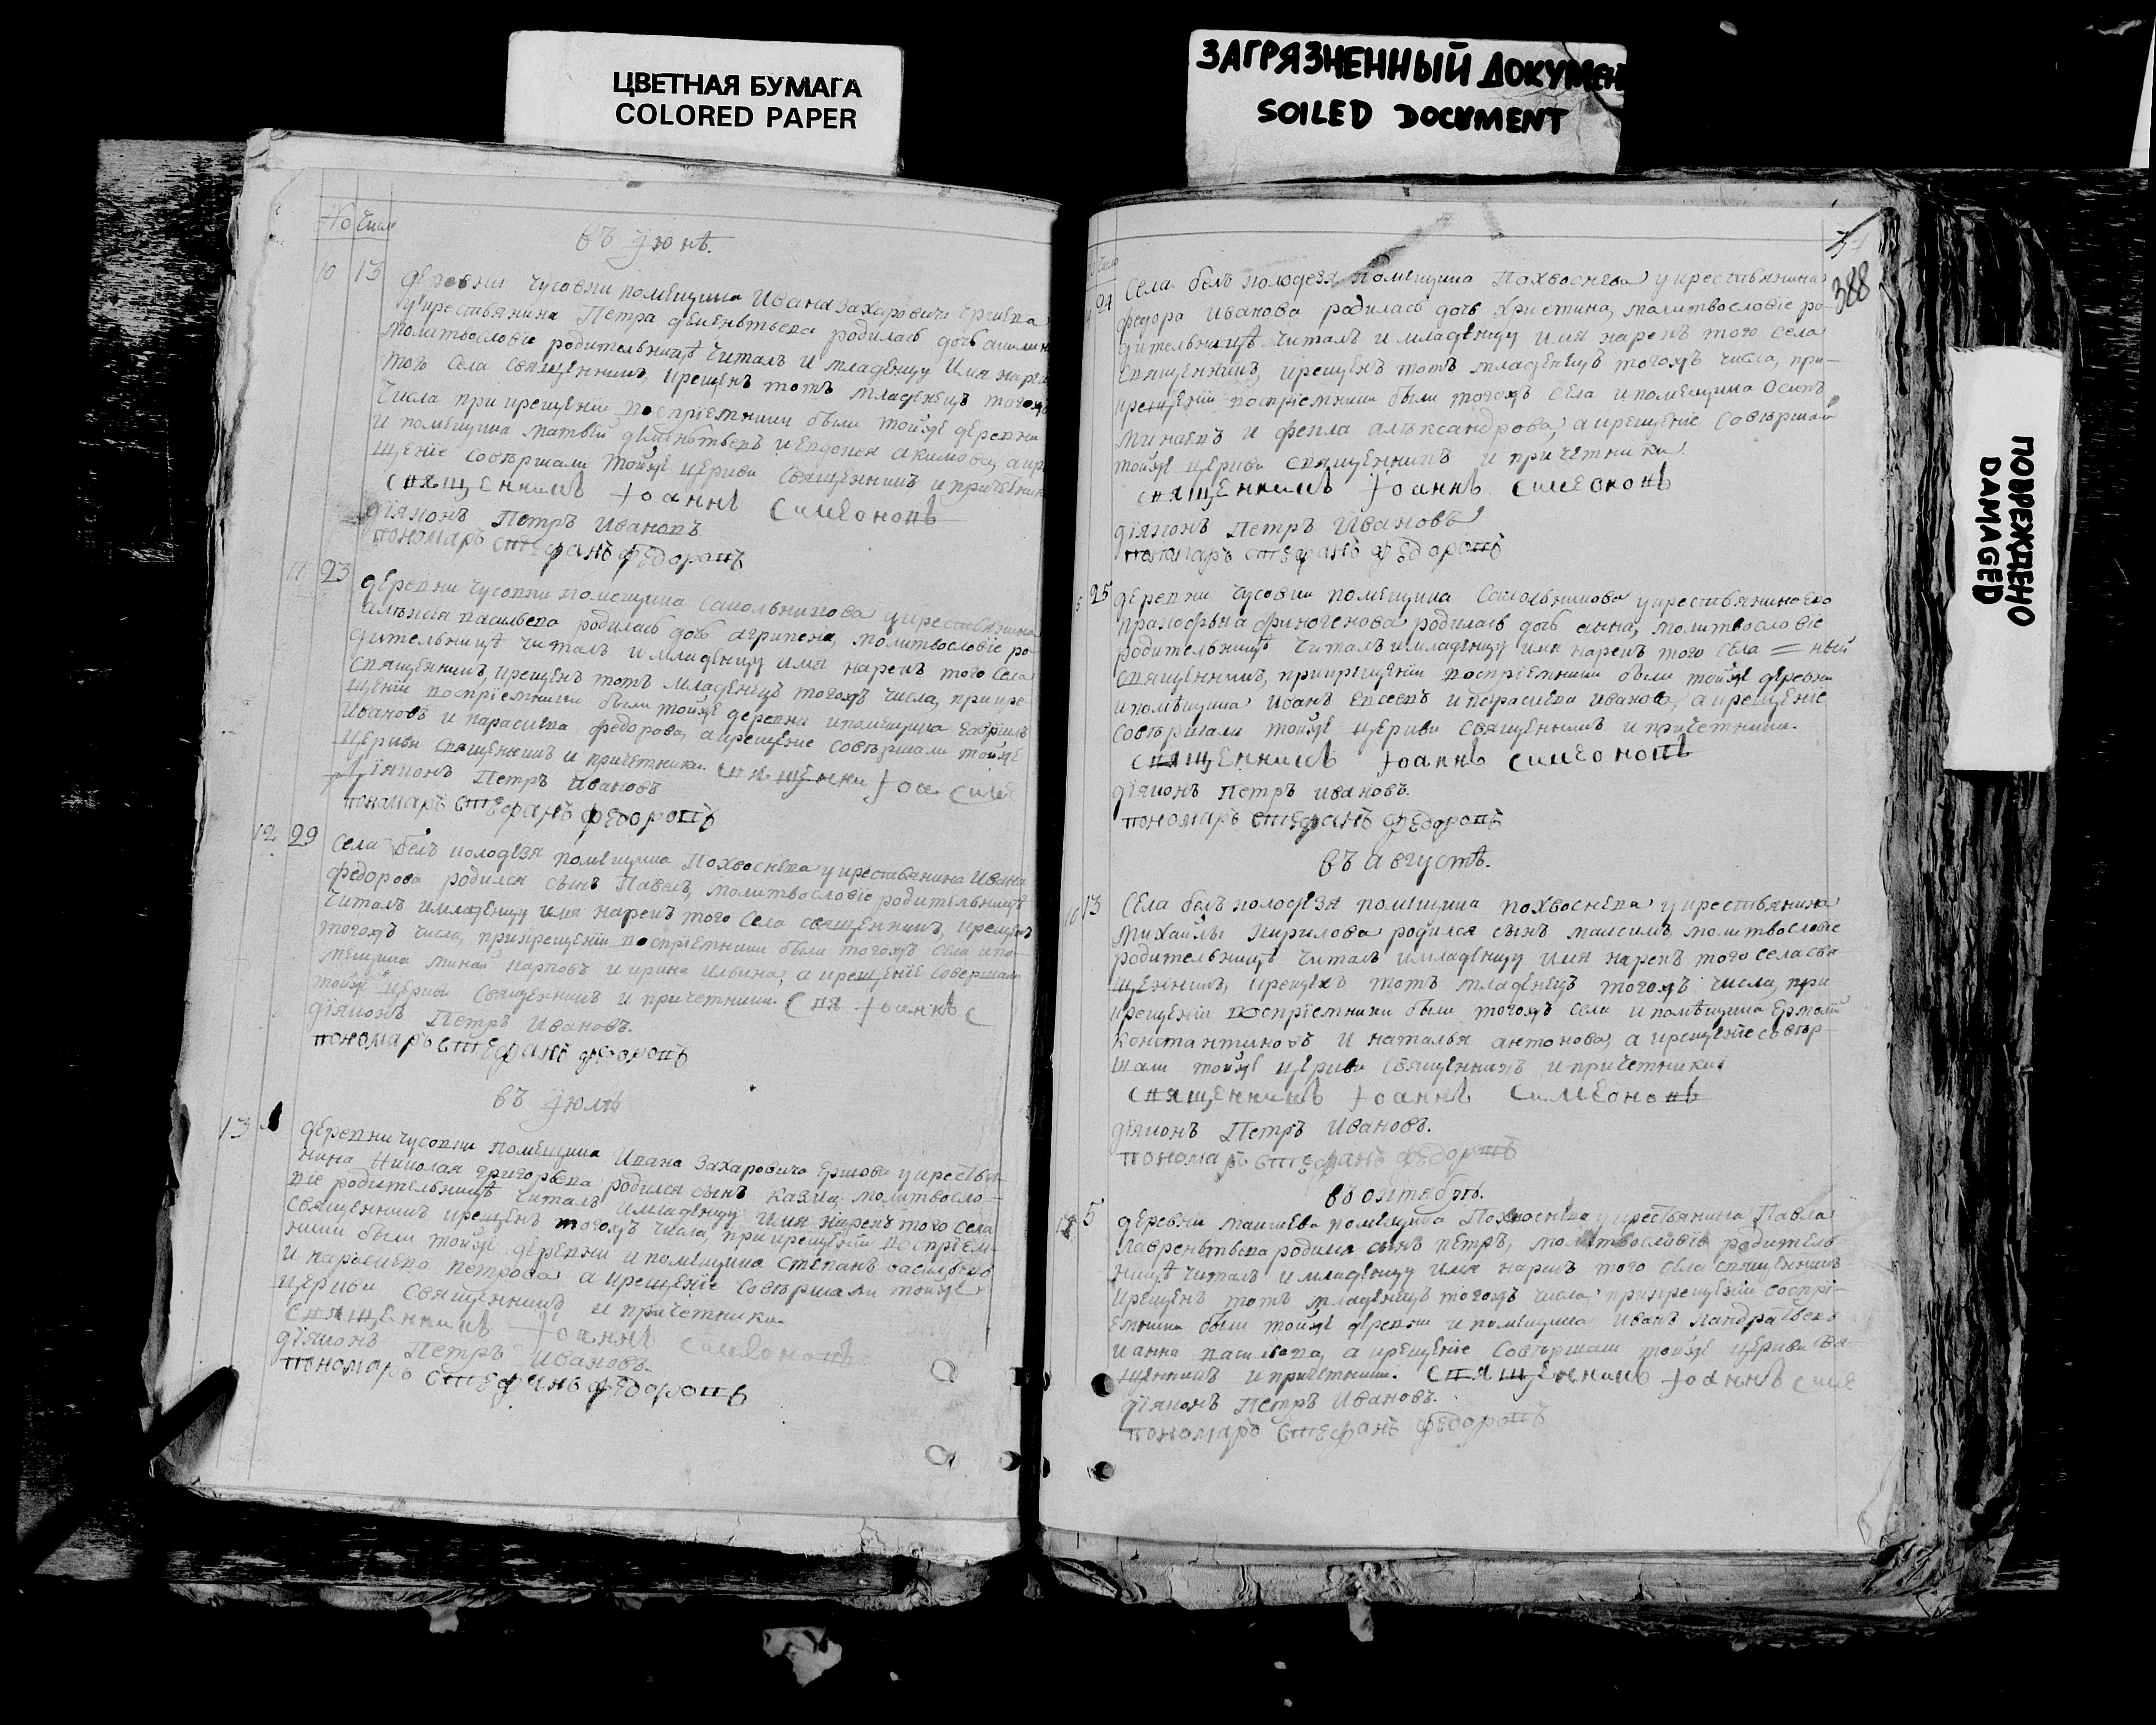 ЦВЕТНАЯ БУМАГА
COLORED PAPER
ЗАГРЯЗНЕННЫЙ ДОКУМЕН
SOILED DOCUMENT
ПОВРЕЖДЕНО
DAMAGED
№ Число
въ Іюнѣ.
10 13 деревни Чусовки помещика Ивана Захаровича Ершева
у крестьянина Петра дементьева родилась дочь акилин
молитвословіе родительницѣ читалъ и младенцу имя нареч
того села священникъ, крещенъ тотъ младенецъ тогожъ
числа при крещеніи воспріемники были тойже деревни
и помещика матвей дементьевъ и евдокея акимова, а кре
щеніе совершали тойже церкви священникъ и причетник
священникъ Іоаннъ Симеоновъ
діяконъ Петръ Ивановъ
пономарь Стефанъ Федоровъ
11 23 деревни Чусовки помещика Сакольникова у крестьянина
алексея васильева родилась дочь агрипена, молитвословіе ро-
дительницѣ читалъ и младенцу имя нарекъ того села
священникъ, крещенъ тотъ младенецъ тогожъ числа, при кре-
щеніи воспріемники были тойже деревни и помещика Гаврилъ
Ивановъ и парасковья федорова, а крещеніе совершали тойже
церкви священникъ и причетники священни Іоа Симе
діяконъ Петръ Ивановъ
пономарь Стефанъ Федоровъ
12 29 Села белъ колодезя помещика Похвоснева у крестьянина Ивана
федорова родился сынъ Павелъ, молитвословіе родительницѣ
читалъ и младенцу имя нарекъ того села священникъ, крещенъ
тогожъ числа, при крещеніи воспріемники были тогожъ села и по-
мещика минай карповъ и ирина ильина, а крещеніе совершали
тойже церкви священникъ и причетники. Свя Іоаннъ С
діяконъ Петръ Ивановъ.
пономарь Стефанъ Федоровъ
въ Іюлѣ
13 деревни Чусовки помещика Ивана Захаровича Ершова у крестья-
нина Николая григорьева родился сынъ Казма, молитвосло-
віе родительницѣ читалъ и младенцу имя нарекъ того села
священникъ крещенъ тогожъ числа, при крещеніи воспріем-
ники были тойже деревни и помещика Степанъ васильевъ
и парасковья петрова а крещеніе совершали тойже
церкви священникъ и причетники
священникъ Іоаннъ Симеоновъ
діяконъ Петръ Ивановъ.
пономарь Стефанъ Федоровъ
388
24 Села белъ колодезя помещика Похвоснева у крестьянина
федора иванова родилась дочь Христина, молитвословіе ро-
дительницѣ читалъ и младенцу имя нарекъ того села
священникъ, крещенъ тотъ младенецъ тогожъ числа, при-
крещеніи воспріемники были тогожъ села и помещика Осипъ
Минаевъ и фекла александрова, а крещеніе совершали
тойже церкви священникъ и причетники
священникъ Іоаннъ Симеоновъ
діяконъ Петръ Ивановъ
пономарь Стефанъ Федоровъ
25 деревни Чусовки помещика Сакольникова у крестьянина ево
пракофья финогенова родилась дочь анна, молитвословіе
родительницѣ читалъ и младенцу имя нарекъ того села
священникъ, при крещеніи воспріемники были тойже деревни
и помещика иванъ евсеевъ и парасковья иванова, а крещеніе
совершали тойже церкви священникъ и причетники.
священникъ Іоаннъ Симеоновъ
діяконъ Петръ Ивановъ.
пономарь Стефанъ Федоровъ
въ августѣ.
13 Села белъ колодезя помещика похвоснева у крестьянина
Михайлы Кирилова родился сынъ максимъ молитвословіе
родительницѣ читалъ и младенцу имя нарекъ того села свя
щенникъ, крещенъ тотъ младенецъ тогожъ числа, при
крещеніи воспріемники были тогожъ села и помещика Ермолай
Константиновъ и наталья антонова, а крещеніе совер-
шали тойже церкви священникъ и причетники
священникъ Іоаннъ Симеоновъ
діяконъ Петръ Ивановъ.
пономарь Стефанъ Федоровъ
въ октябрѣ.
5 деревни помещика Похвоснева у крестьянина Павла
лаврентьева родился сынъ петръ, молитвословіе родитель
ницѣ читалъ и младенцу имя нарекъ того села священникъ
крещенъ тотъ младенецъ тогожъ числа, при крещеніи воспрі-
емники были тойже деревни и помещика иванъ кандратьевъ
и анна васильева, а крещеніе совершали тойже церкви свя-
щенникъ и причетники. священникъ Іоаннъ Симе
діяконъ Петръ Ивановъ.
пономарь Стефанъ Федоровъ